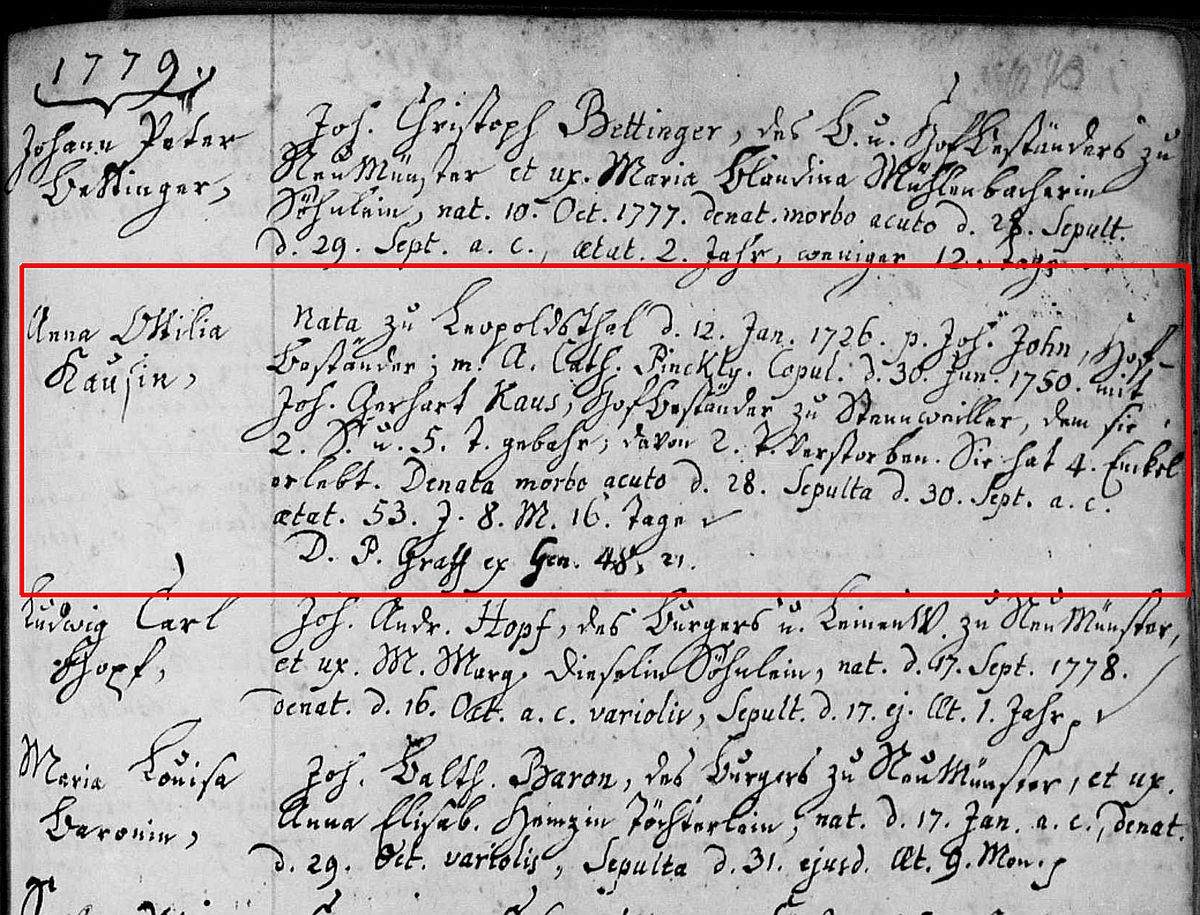 1779.
Johann Peter
Bettinger,
Joh. Christoph Bettinger, des B. u. Hofbeständers zu
NeuMünster et ux. Maria Blandina Mühlenbacherin
Söhnlein, nat. 10. Oct. 1777. denat. morbo acuto d. 28. Sepult.
d. 29. Sept. a. c., ætat. 2. Jahr, weniger 12. tage
Anna Ottilia
Kausin,
Nata zu Leopoldsthal d. 12. Jan. 1726. p. Joh. John, Hof-
beständer; m. A. Cath. Pinckly. Copul. d. 30. Jun. 1750. mit
Joh. Gerhart Kaus, Hofbeständer zu Stennweiller, dem sie
2. S. u. 5. T. gebahr, davon 2. T. verstorben. Sie hat 4. Enckel
erlebt. Denata morbo acuto d. 28. Sepulta d. 30. Sept. a. c.
ætat. 53. J. 8. M. 16. Tage
D. P. Graff ex Gen. 48, 21.
Ludwig Carl
Hopf,
Joh. Andr. Hopf, des Burgers u. LeinenW. zu NeuMünster,
et ux. M. Marg. Dieselin Söhnlein, nat. d. 17. Sept. 1778.
denat. d. 16. Oct. a. c. variolis, Sepult. d. 17. ej. Æt. 1. Jahr
Maria Louisa
Baronin,
Joh. Balth. Baron, des Burgers zu NeuMünster, et ux.
Anna Elisab. Heinzin Töchterlein, nat. d. 17. Jan. a. c., denat.
d. 29. Oct. variolis, Sepulta d. 31. ejusd. Æt. 9. Mon.